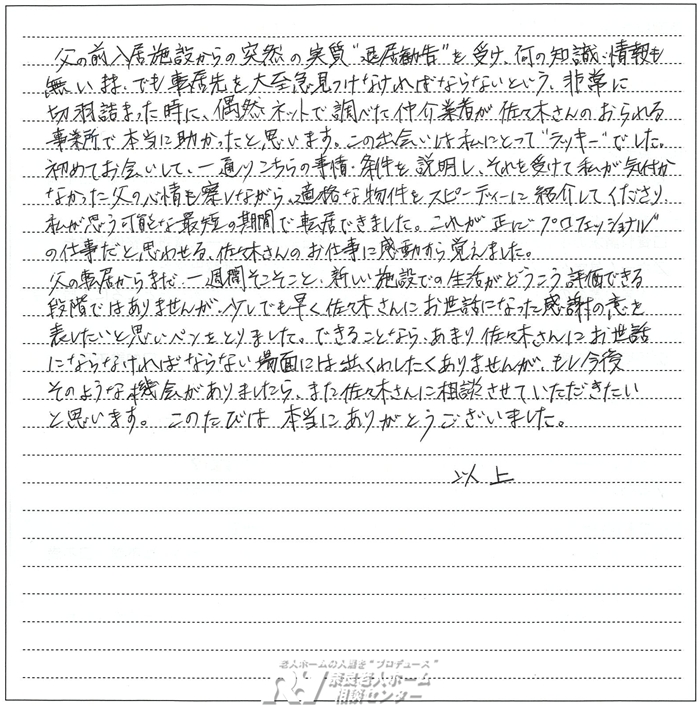 父の前入居施設からの突然の実質"退居勧告"を受け、何の知識・情報も
無いまま、でも転居先を大至急見つけなければならないという、非常に
切羽詰まった時に、偶然ネットで調べた仲介業者が佐々木さんのおられる
事業所で本当に助かったと思います。この出会いは私にとって"ラッキー"でした。
初めてお会いして、一通りこちらの事情・条件を説明し、それを受けて私が気付か
なかった父の心情も察しながら、適格な物件をスピーディーに紹介してくださり、
私が思う可能な最短の期間で転居できました。これが正に"プロフェッショナル"
の仕事だと思わせる、佐々木さんのお仕事に感動すら覚えました。
父の転居からまだ一週間そこそこと、新しい施設での生活がどうこう評価できる
段階ではありませんが、少しでも早く佐々木さんにお世話になった感謝の意を
表したいと思いペンをとりました。できることなら、あまり佐々木さんにお世話
にならなければならない場面には出くわしたくありませんが、もし今後
そのような機会がありましたら、また佐々木さんに相談させていただきたい
と思います。このたびは本当にありがとうございました。
以上
老人ホームの入居を"プロデュース"
老人ホーム
相談センター